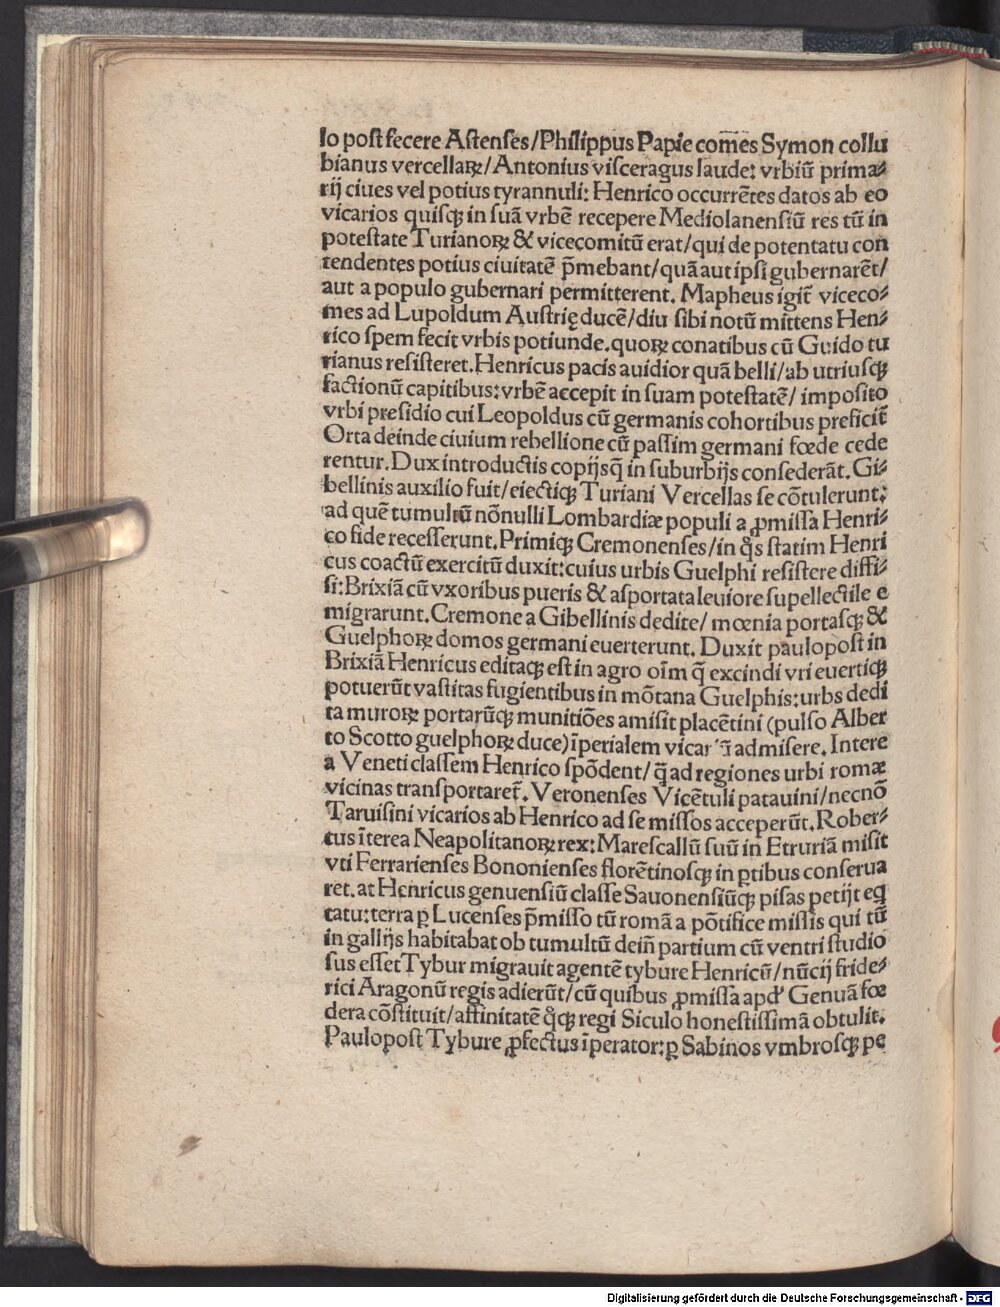 lo post fecere Astenses/Philippus Papie com̄es Symon collu
bianus vercellaꝝ/Antonius visceragus laude: vrbiū prima⸗
rij ciues vel potius tyrannuli: Henrico occurrētes datos ab eo
vicarios quisqꝫ in suā vrbē recepere Mediolanensiū res tū in
potestate Turianoꝝ & vicecomitū erat/qui de potentatu con
tendentes potius ciuitatē p̄mebant/quā aut ipsi gubernarēt/
aut a populo gubernari permitterent. Mapheus igit̄ viceco⸗
mes ad Lupoldum Austrię ducē/diu sibi notū mittens Hen⸗
rico spem fecit vrbis potiunde.quoꝝ conatibus cū Guido tu
rianus resisteret.Henricus pacis auidior quā belli/ab utriusqꝫ
factionū capitibus:vrbē accepit in suam potestatē/ imposito
vrbi presidio cui Leopoldus cū germanis cohortibus preficit̄
Orta deinde ciuium rebellione cū passim germani fœde cede
rentur.Dux introductis copijsq̄ in suburbijs consederāt.Gi⸗
bellinis auxilio fuit/eiectiqꝫ Turiani Vercellas se cōtulerunt:
ad quē tumultū nōnulli Lombardiæ populi a ꝓmissa Henri⸗
co fide recesserunt.Primiqꝫ Cremonenses/in q̊s statim Henri
cus coactū exercitū duxit:cuius urbis Guelphi resistere diffi⸗
si:Brixiā cū vxoribus pueris & asportata leuiore supellectile e
migrarunt.Cremone a Gibellinis dedite/ mœnia portasqꝫ &
Guelphoꝝ domos germani euerterunt. Duxit paulopost in
Brixiā Henricus editaqꝫ est in agro oīm q̄ excindi vri euertiqꝫ
potuerūt vastitas fugientibus in mōtana Guelphis:urbs dedi
ta muroꝝ portarūqꝫ munitiōes amisit placētini (pulso Alber
to Scotto guelphoꝝ duce)īperialem vicar admisere. Intere
a Veneti classem Henrico spōdent/q̄ ad regiones urbi romæ
vicinas transportaret̄. Veronenses Vicētuli patauini/necnō
Taruisini vicarios ab Henrico ad se missos acceperūt.Rober⸗
tus īterea Neapolitanoꝝ rex:Marescallū suū in Etruriā misit
vti Ferrarienses Bononienses florētinosqꝫ in ꝑtibus conserua
ret.at Henricus genuensiū classe Sauonensiūqꝫ pisas petijt eq̄
tatu:terra ꝑ Lucenses p̄misso tū romā a pōtifice missis qui tū
in gallijs habitabat ob tumultū dein̄ partium cū ventri studio
sus esset Tybur migrauit agentē tybure Henricū/nūcij fride⸗
rici Aragonū regis adierūt/cū quibus ꝓmissa apd' Genuā fœ
dera cōstituit/affinitatē q̊qꝫ regi Siculo honestissimā obtulit.
Paulopost Tybure ꝓfectus īperator:ꝑ Sabinos vmbrosqꝫ pe
Digitalisierung gefördert durch die Deutsche Forschungsgemeinschaft - DFG